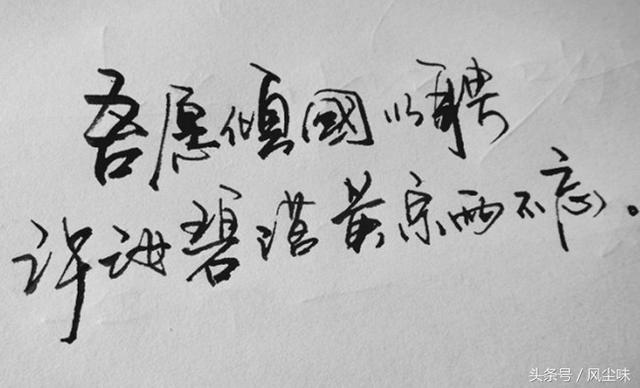 吾愿傾國以聘
许汝碧落黄泉两不忘。
头条号 / 风尘味